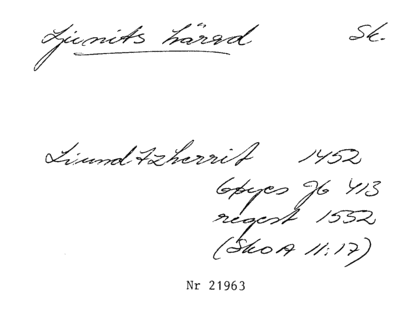 Ljunits härad Sk.
Liund tzherrit 1452
6pyes Jb 413
regest 1552
(SkoA 11:17)
Nr 21963